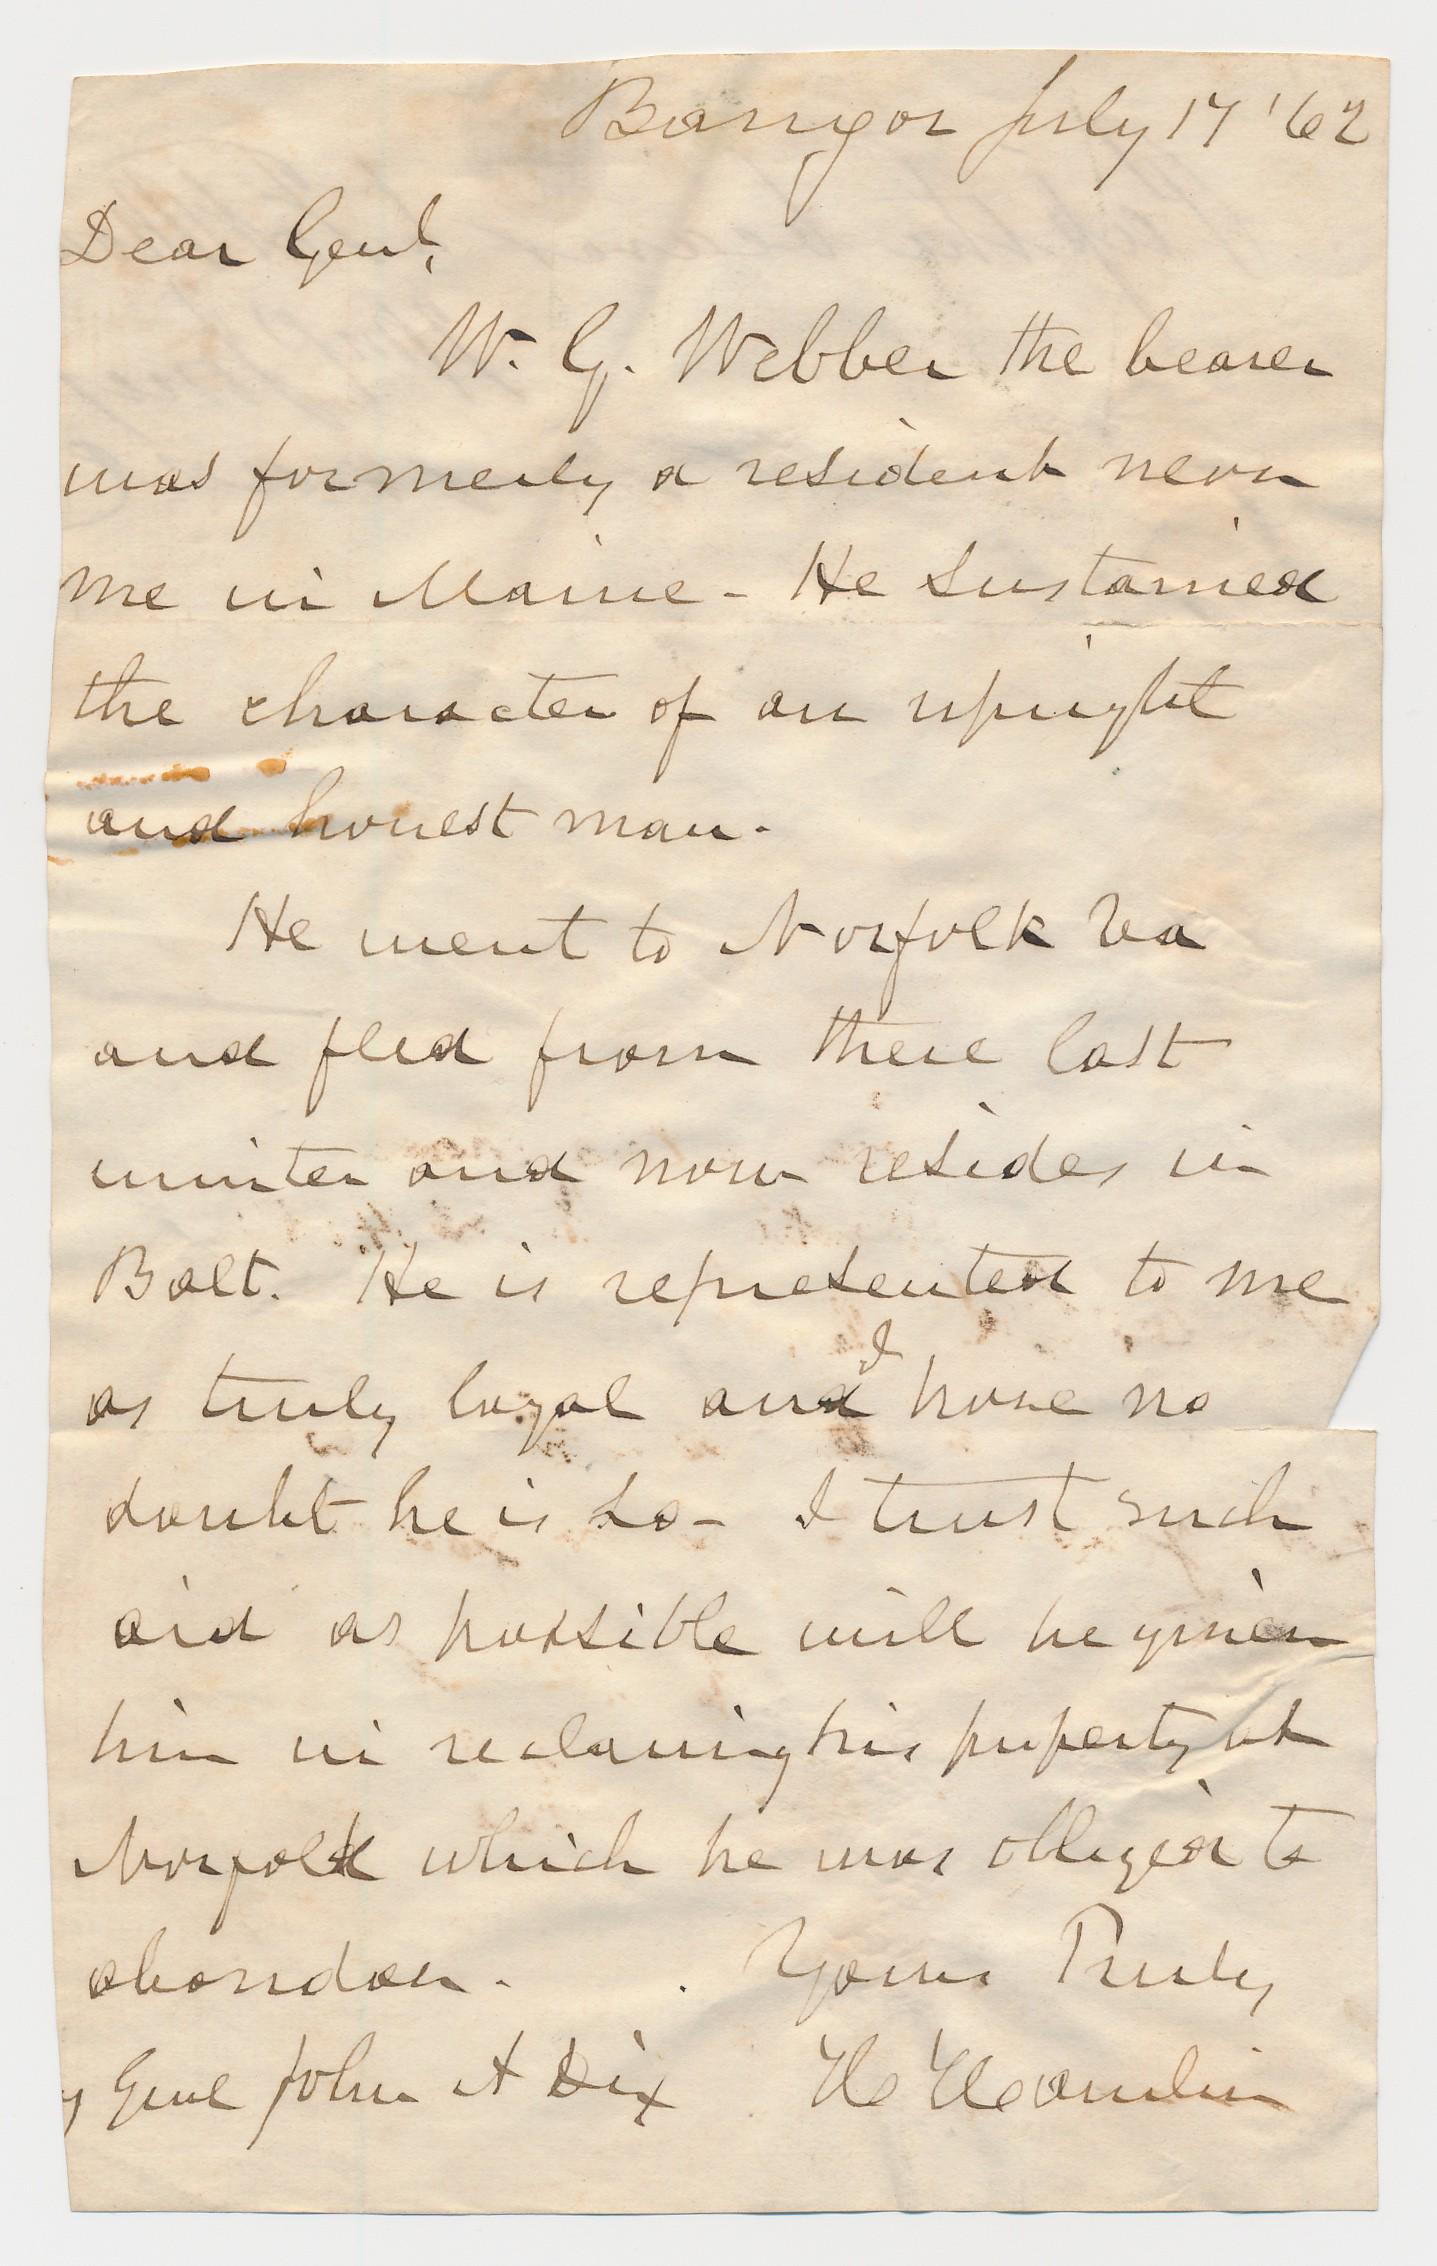 Bangor July 17 '62
Dear Genl,
W. G. Webber the bearer
was formerly a resident near
me in Maine - He sustained
the character of an upright
and honest man.
He went to Norfolk Va
and fled from there last
winter and now resides in
Balt. He is represented to me
as truly loyal and I have no
doubt he is so - I trust such
aid as possible will be given
him in reclaming his property at
Norfolk which he was obliged to
abandon. Yours Truly
Genl John A Dix H Hamlin